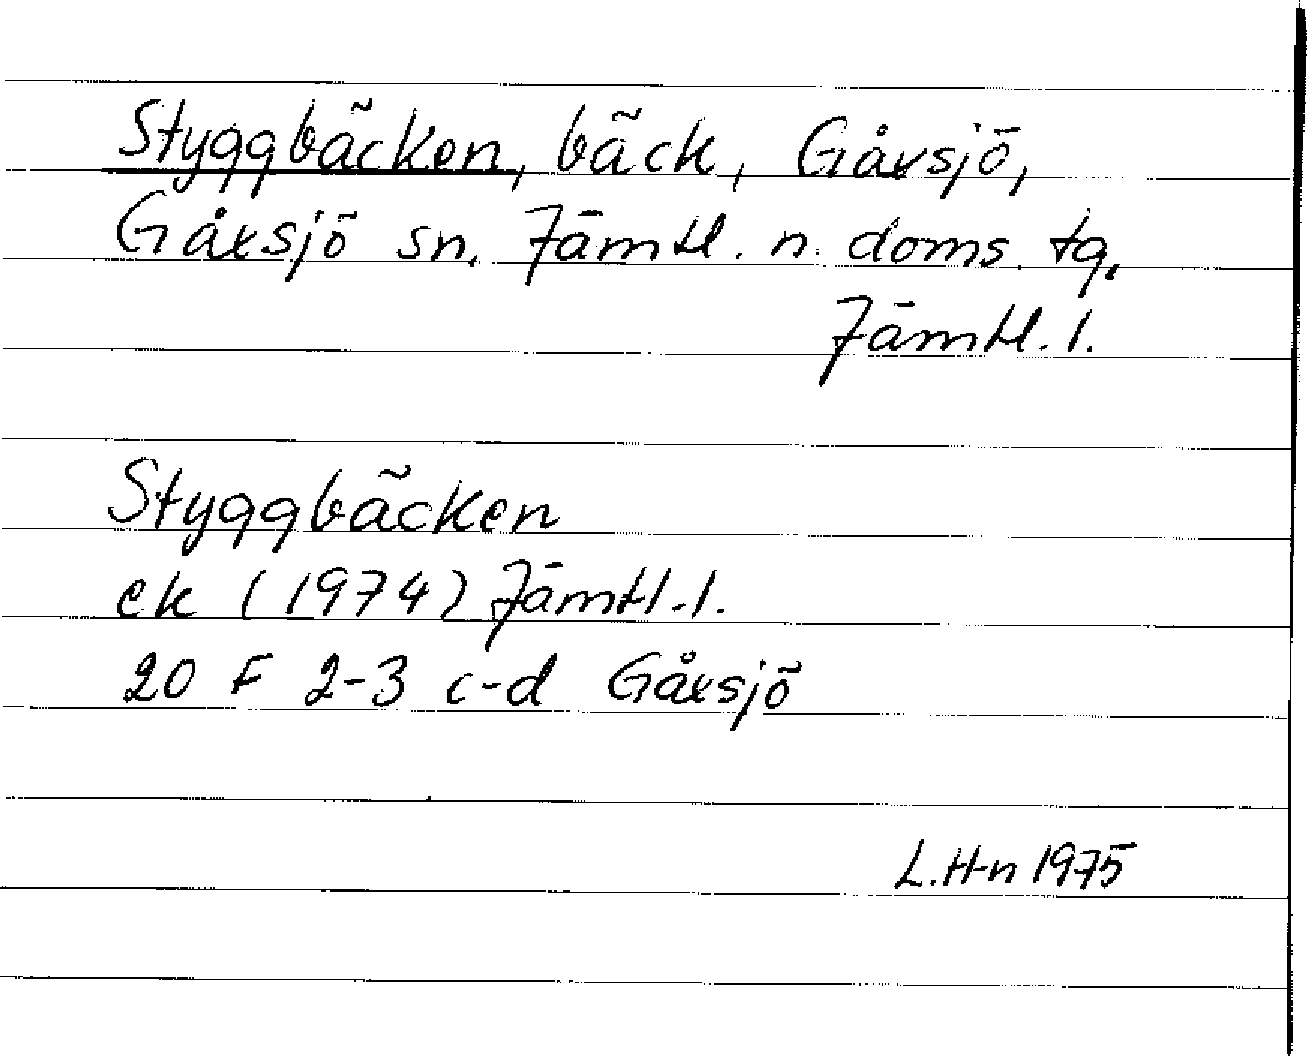 Styggbäcken, bäck, Gåxsjö,
Gåxsjö sn. Jämtl. n. doms. tg.
Jämtl. l.
Styggbäcken
ek (1974) Jämtl. l.
20 F 2-3 c-d Gåxsjö
L.H-n 1975